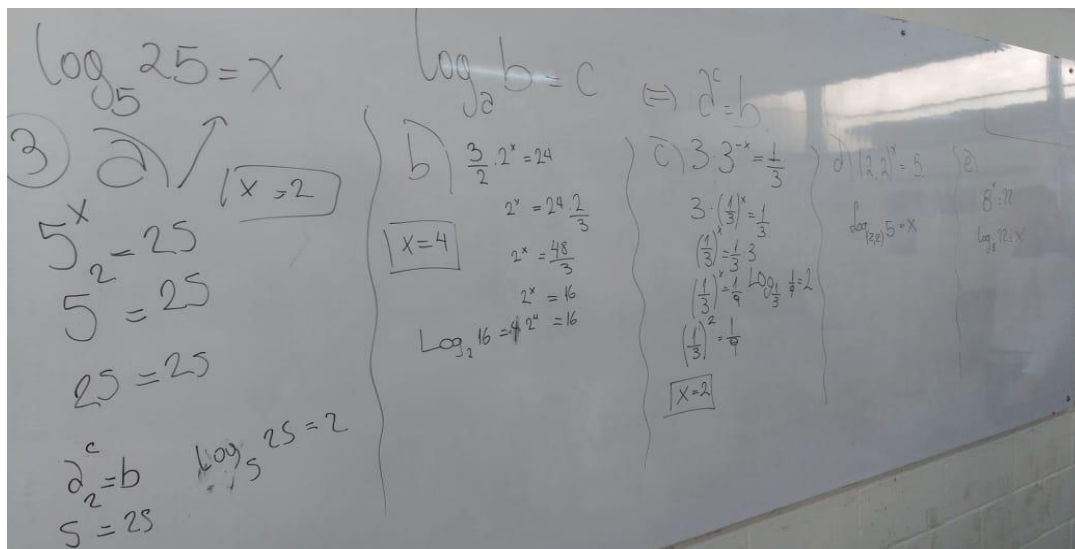 log₅ 25 = x
3 a)
x = 2
5ˣ = 25
5² = 25
25 = 25
aᶜ = b
5² = 25
log₅ 25 = 2
logₐ b = c ⇔ aᶜ = b
b) 3/2 · 2ˣ = 24
2ˣ = 24 · 2/3
x = 4
2ˣ = 48/3
2ˣ = 16
Log₂ 16 = 4 2⁴ = 16
c) 3 · 3⁻ˣ = 1/3
3 · (1/3)ˣ = 1/3
(1/3)ˣ = 1/3 : 3
(1/3)ˣ = 1/9 Log 1/3 1/9 = 2
(1/3)² = 1/9
x = 2
d) (2,2)ˣ = 5
log₍₂,₂₎ 5 = x
e)
8ˣ = 12
log₈ 12 = x